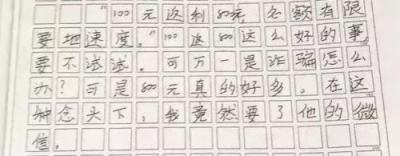 "100元返利800元,名额有限
要地速度。"100返800这么好的事,
要不试试。可万一是诈骗怎么
办?可是800元真的好多。在这
种念头下,我竟然要了他的微
信。